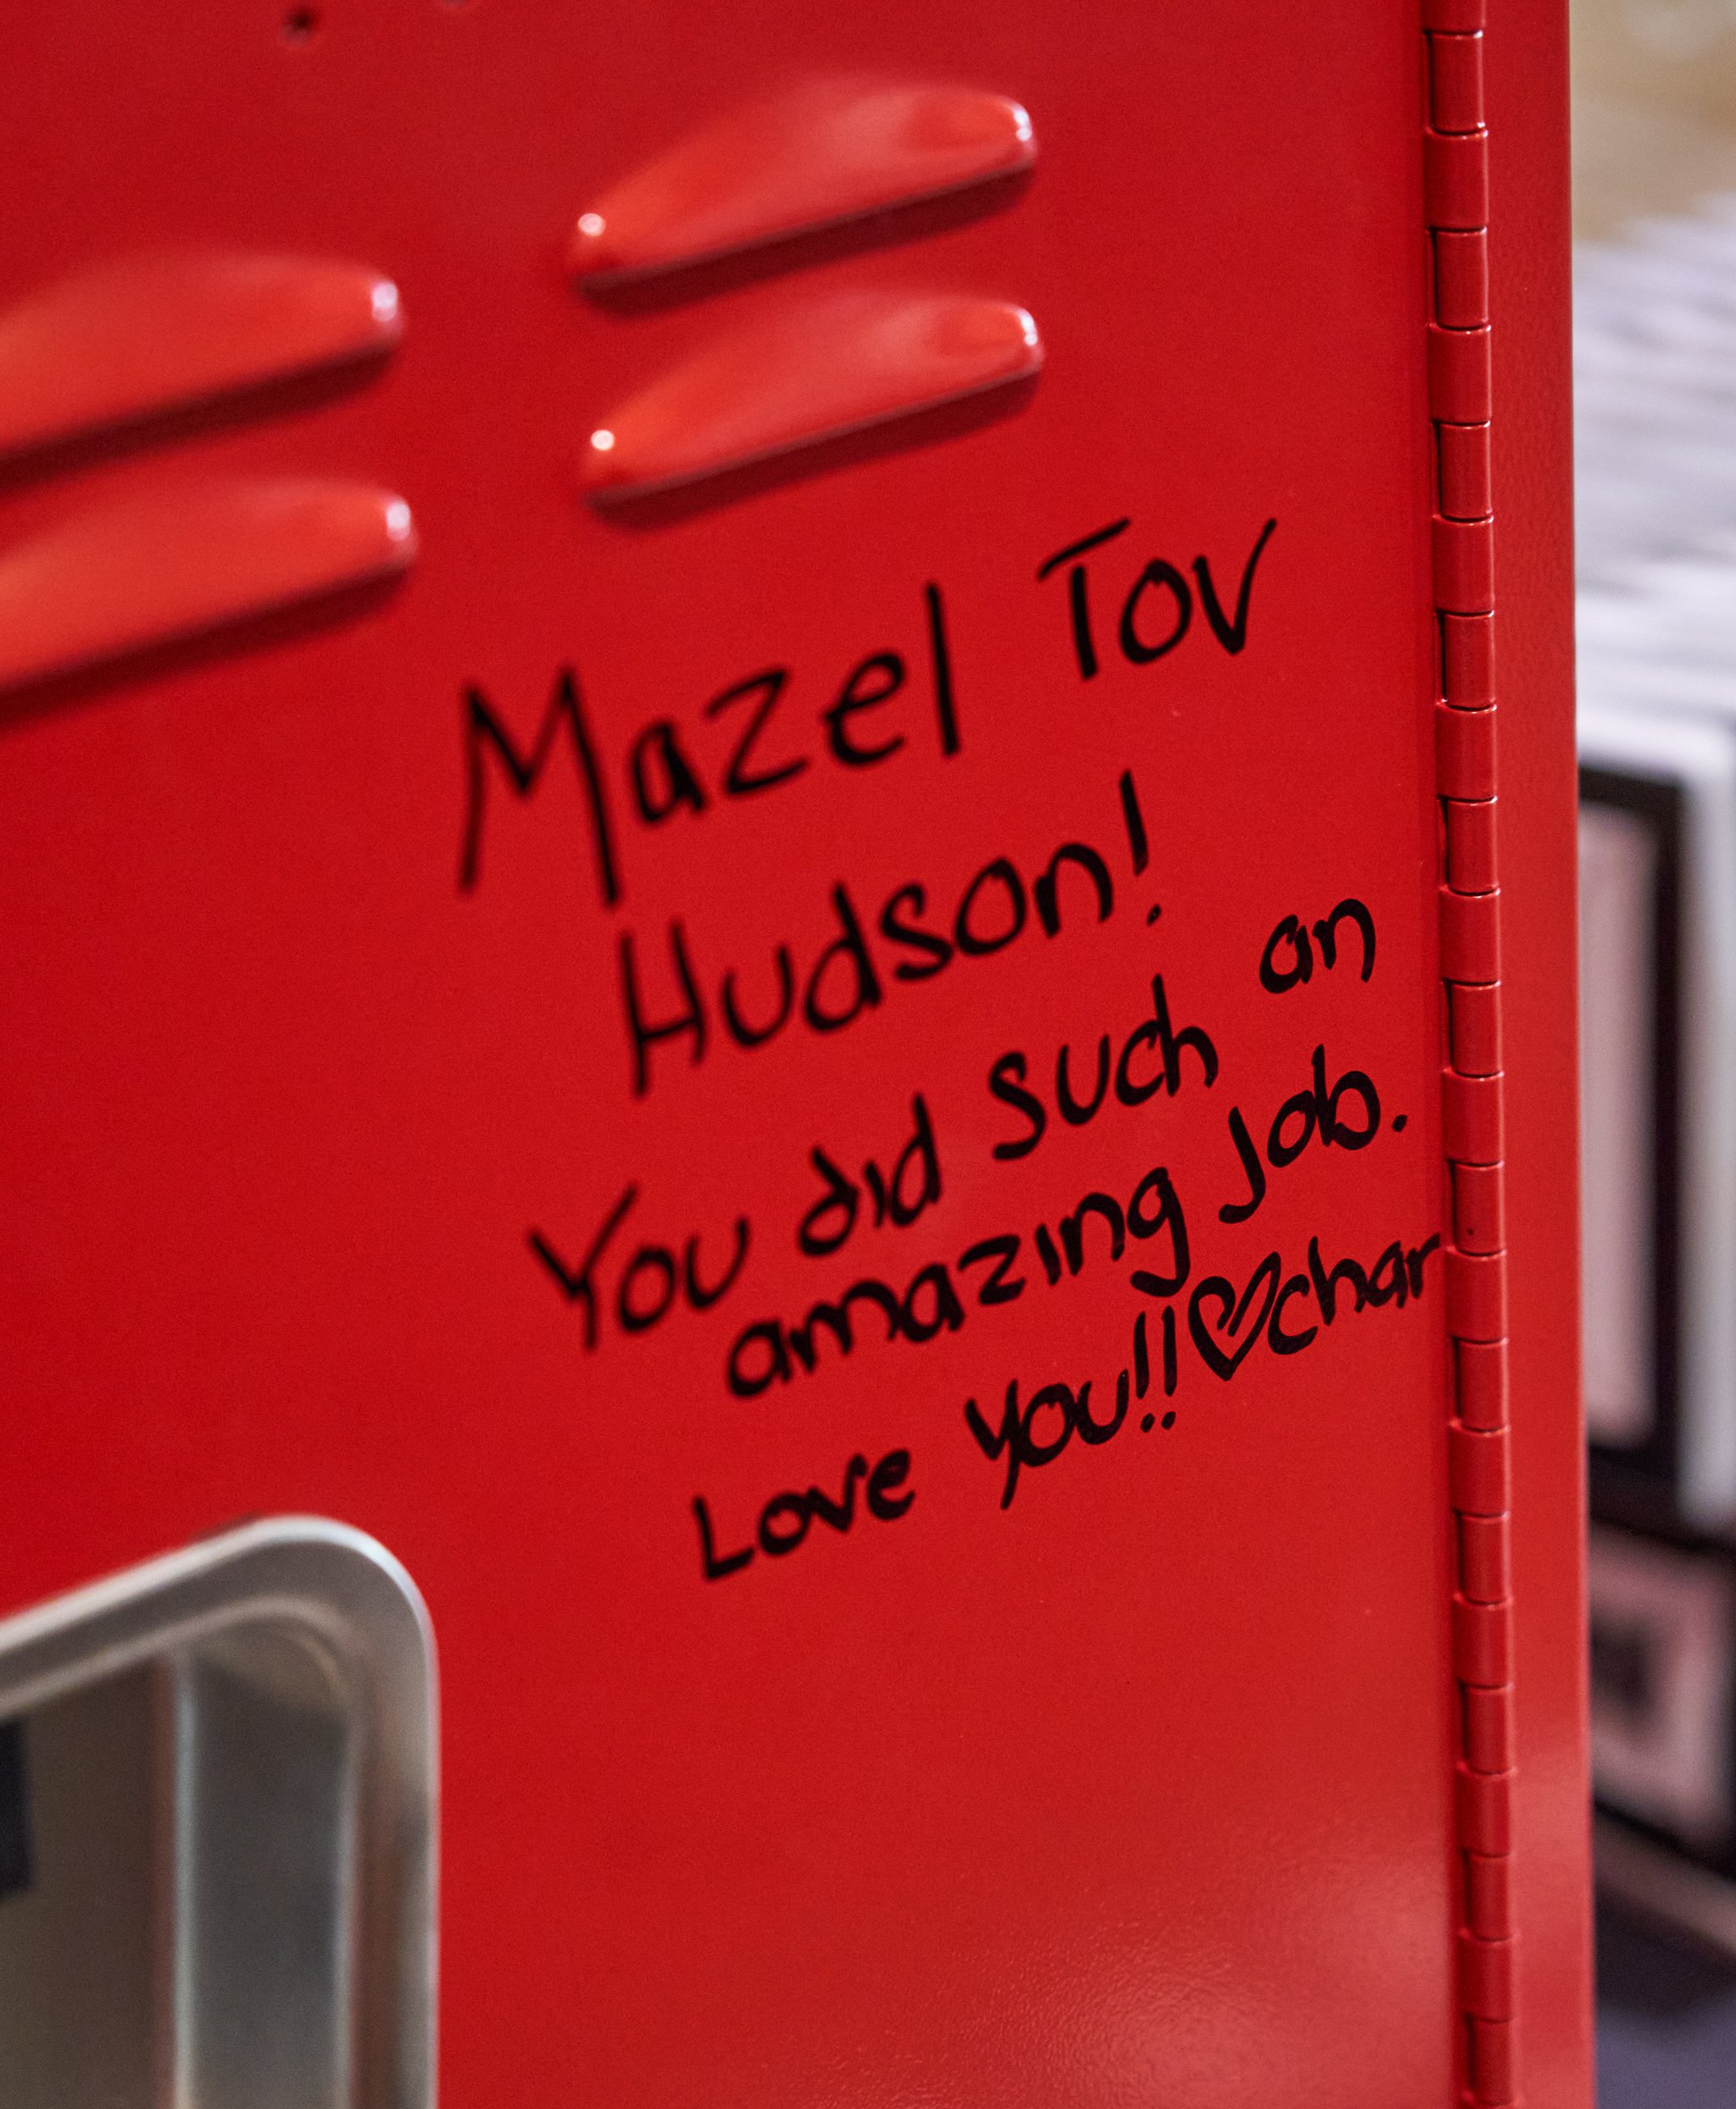 Mazel Tov
Hudson!
You did such an
amazing Job.
Love You!!♡char